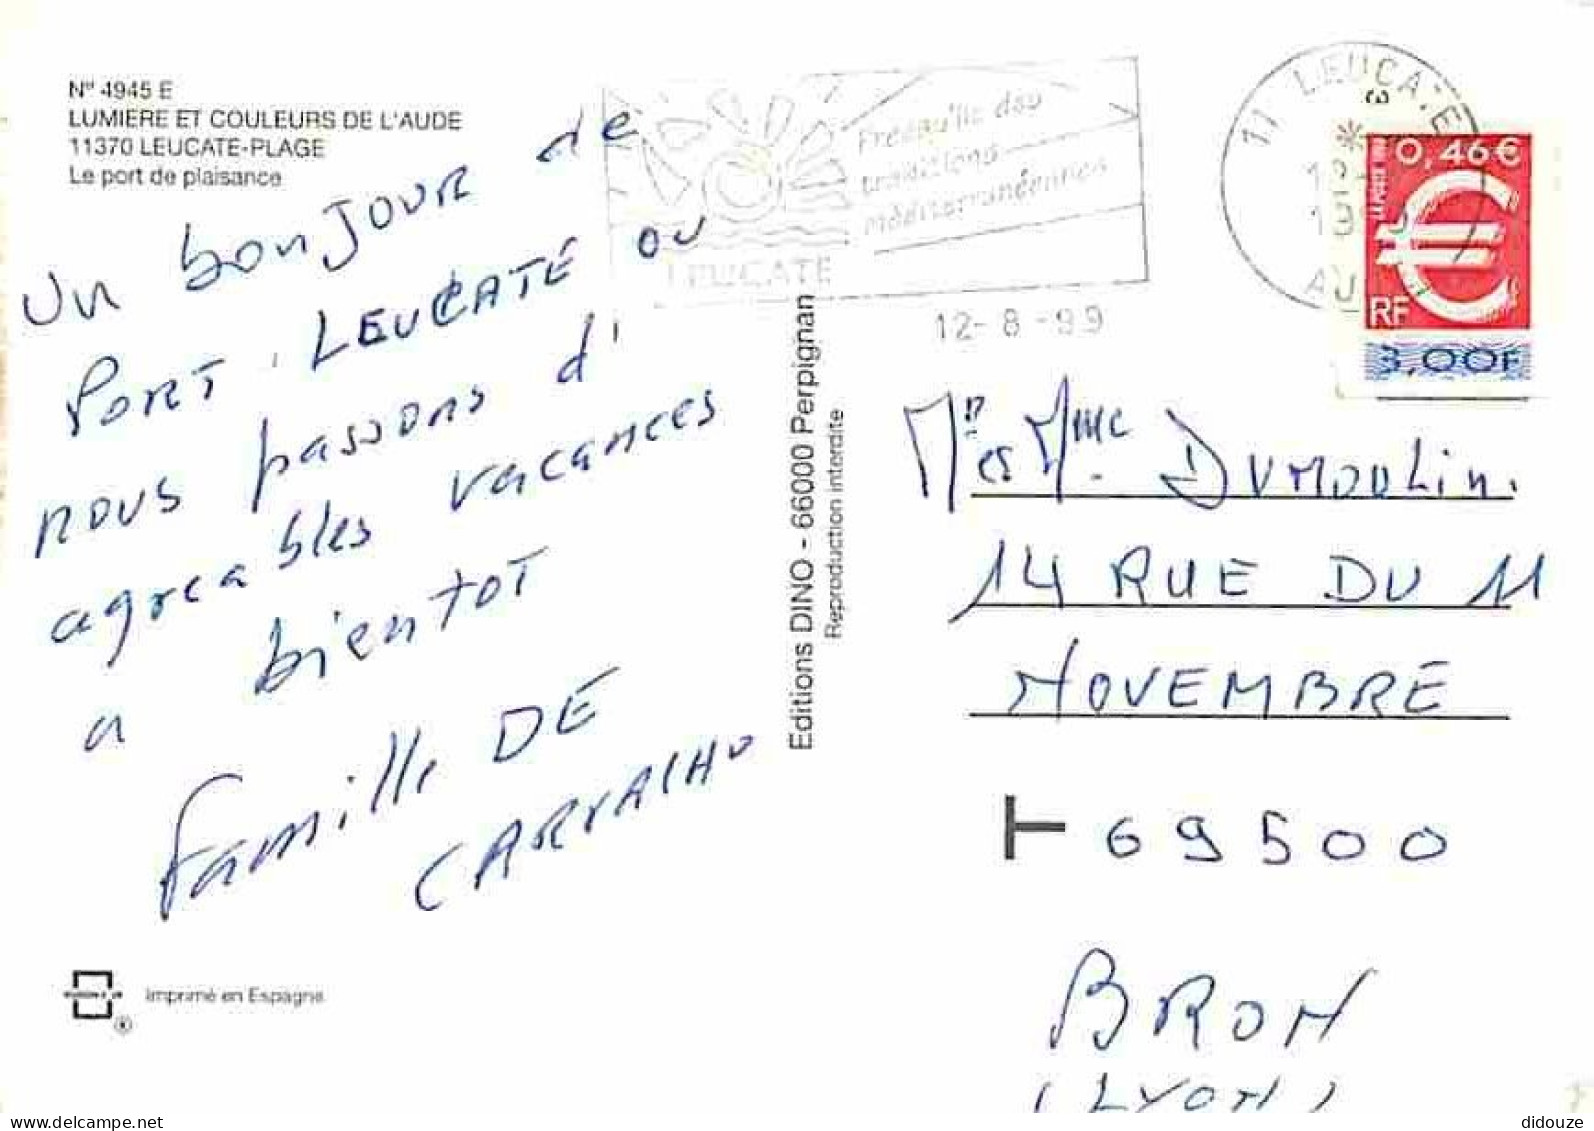 N° 4945 E
LUMIERE ET COULEURS DE L'AUDE
11370 LEUCATE-PLAGE
Le port de plaisance
Un bonJOUR de
PORT LEUCATE OU
nous passons d'
agreables vacances
a bientot
famille DE
CARVALHO
Imprimé en Espagne
Editions DINO - 66000 Perpignan
Reproduction interdite
traditions
méditerranéennes
LEUCATE
12-8-99
11 LEUCATE
0,46€
RF
3,00F
Mr et Mme DUMOULin.
14 RUE DU 11
NOVEMBRE
69500
BRON
(LYON)
didouze